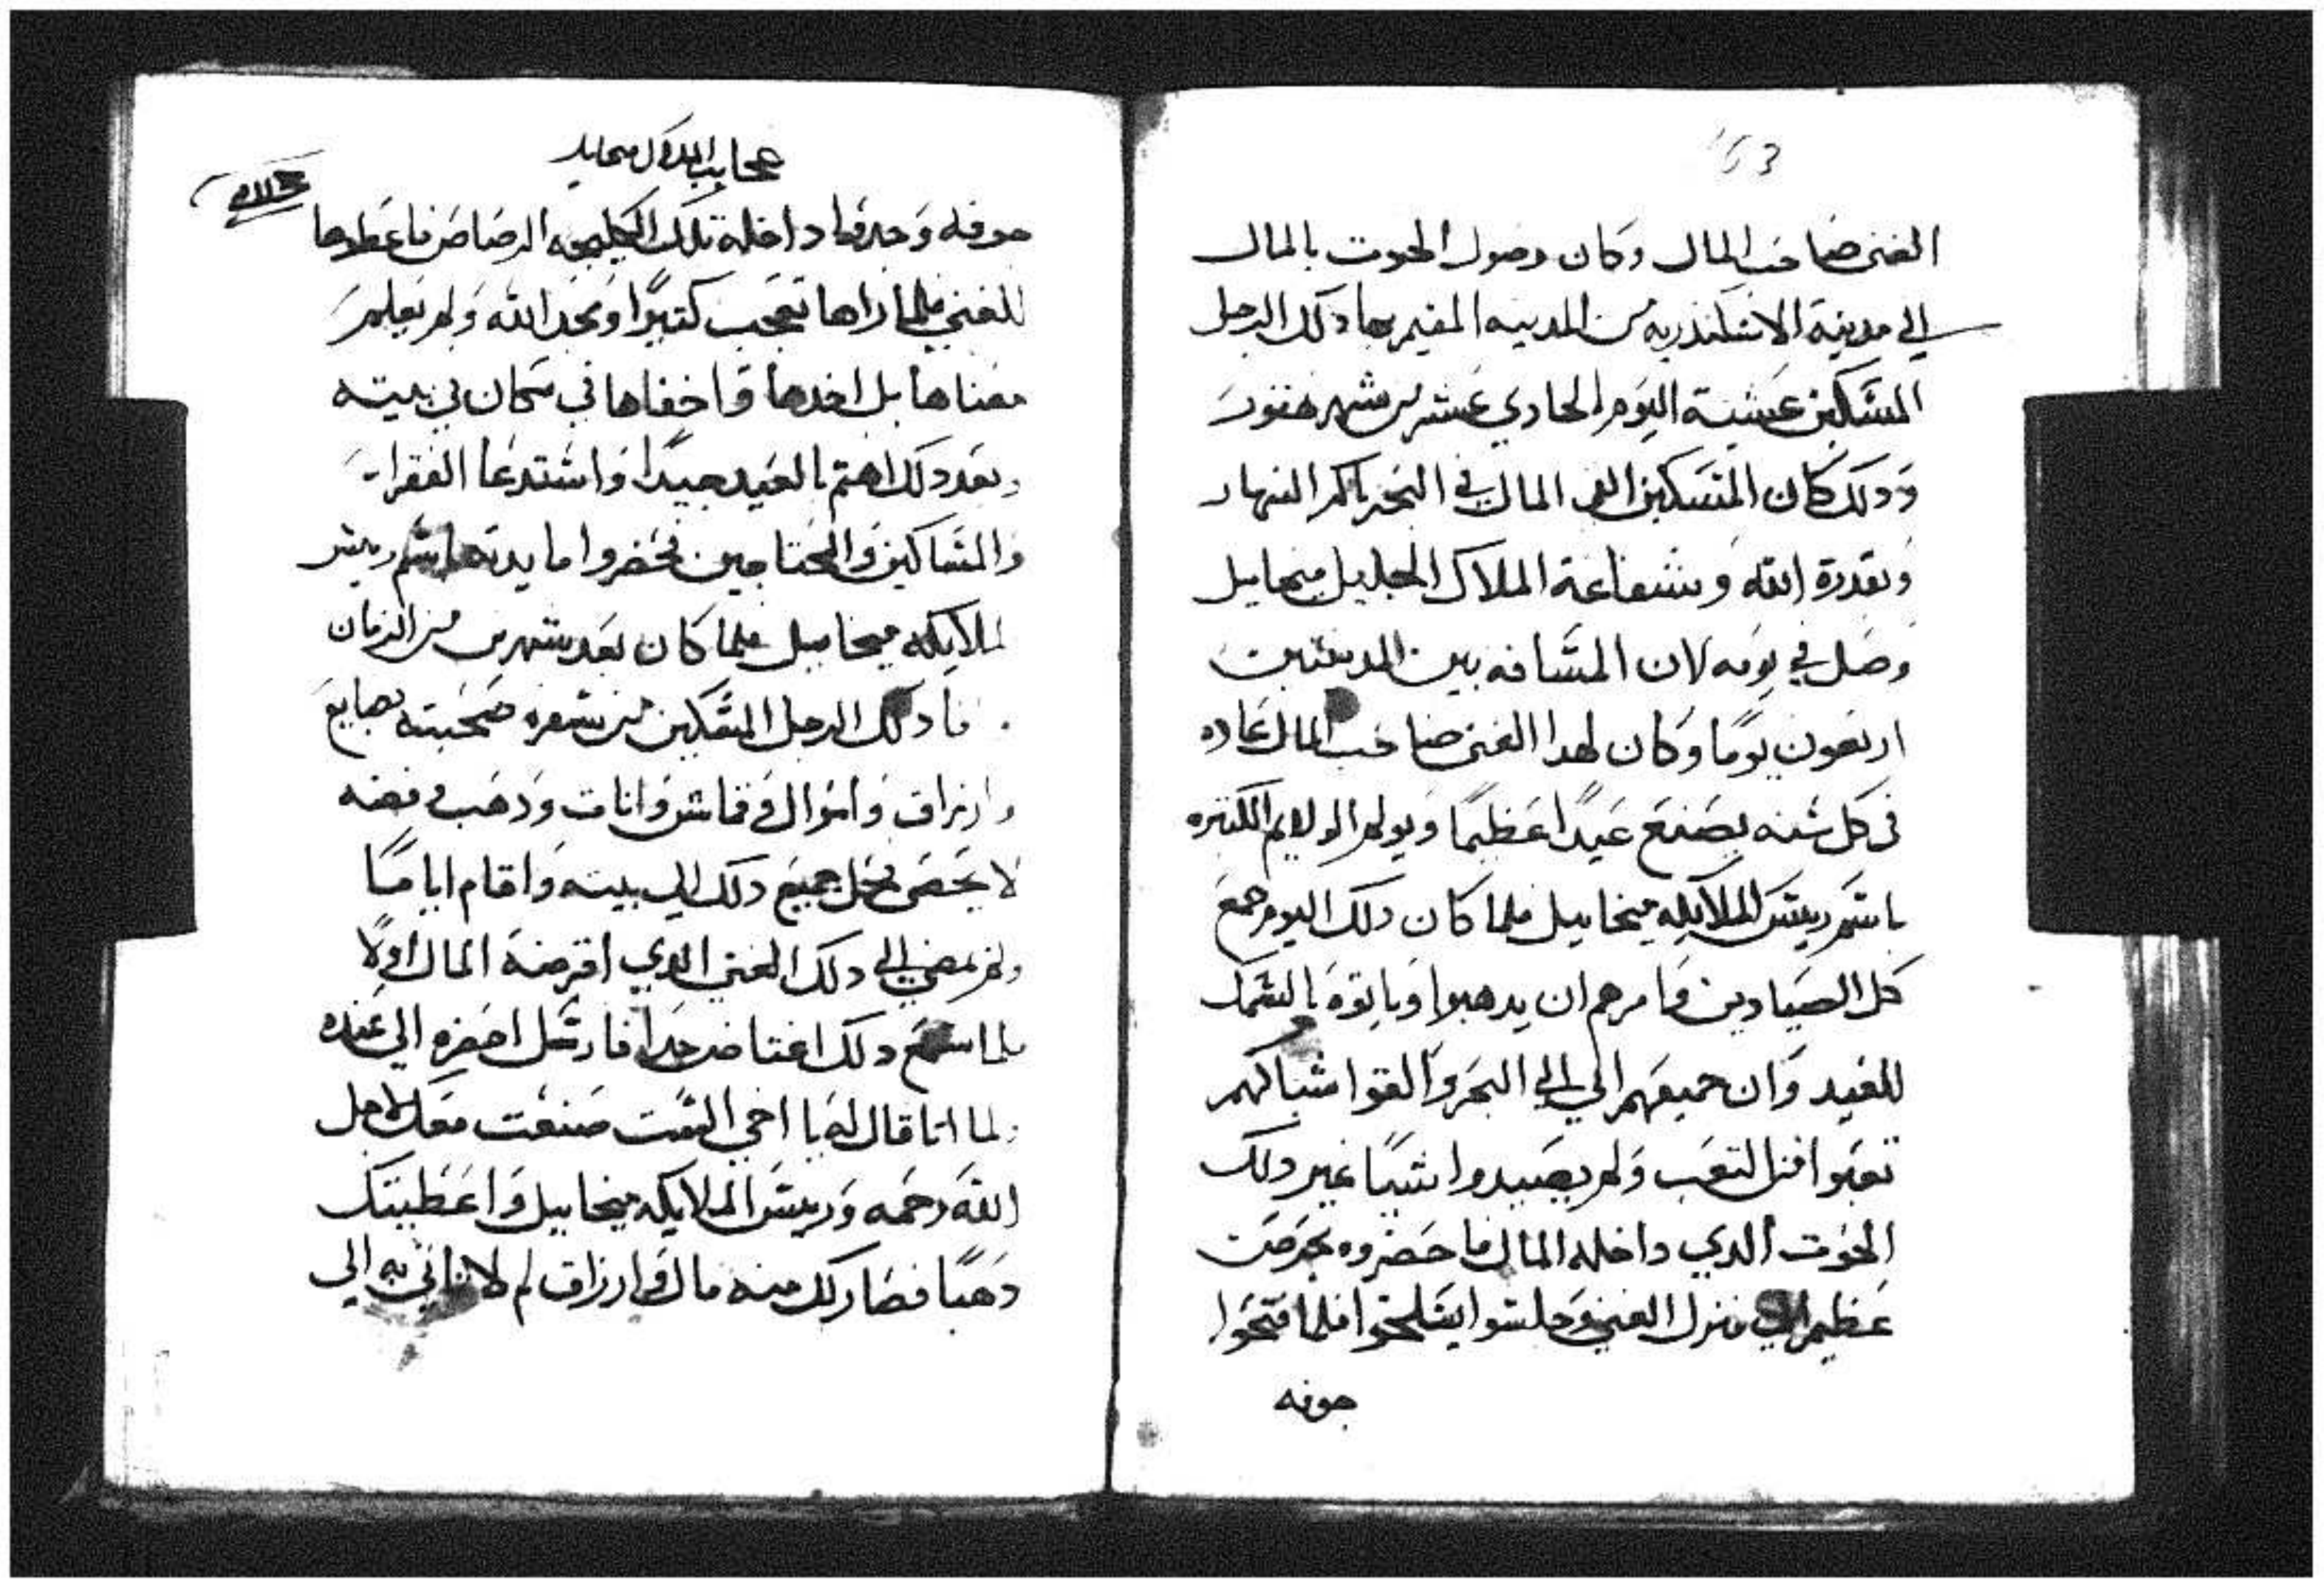 153
الغنى صاحب المال وكان وصول الحوت بالمال
الي مدينة الاسكندريه من المدينه المقيم بها دلك الرجل
المسكين عشية اليوم الحادي عشر من شهر هتور
ودلك كان المسكين القى المال في البحر باكر النهار
وبقدرة الله وشفاعة الملاك الجليل ميخاييل
وصل في يومه لان المسافه بين المدينتين
اربعون يومًا وكان لهدا الغنى صاحب المال عاده
في كل سنه يصنع عيدًا عظيمًا ويولم الولايم الكتيره
باسم رييس الملايكه ميخاييل فلما كان دلك اليوم جمع
كل الصيادين وامرهم ان يدهبوا وياتوه بالسمك
للعيد وان جميعهم الي الي البحر والقوا شباكهم
تعبوا التعب ولم يصيدوا شيًا غير دلك
الحوت الدي داخله المال فاحضروه بحرص
عظيم الي منزل الغني وجلسوا يسلخوا فلما فتحوا
جوفه
عجايب الملاك ميخاييل
جوفه وجدوا داخله تلك الرصاص فاعطوها
للغني فلما راها تعجب كتيرًا ومجد الله ولم يعلم
معناها بل اخدها واخفاها في مكان في بيته
وبعد دلك اهتم بالعيد جيدًا واستدعا الفقرا
والمساكين والمحتاجين فحضروا مايدته باسم رييس
الملايكه ميخاييل فلما كان بعد شهرين من الزمان
دلك الرجل المسكين من سفره صحبته بضايع
وارزاق واموال وقماش واتات ودهب وفضه
لا يحصى فحمل جميع دلك الي بيته واقام ايامًا
ولم يمضي الي دلك الغني الدي اقرضه المال اولًا
فلما سمع دلك اغتاض جدًا فارسل احضره الي عنده
ولما اتا قال له يا اخي الست صنعت معك لاجل
الله رحمه ورييس الملايكه ميخاييل واعطيتك
دهبًا فصار لك منه مال وارزاق لم لا تاتي به الي